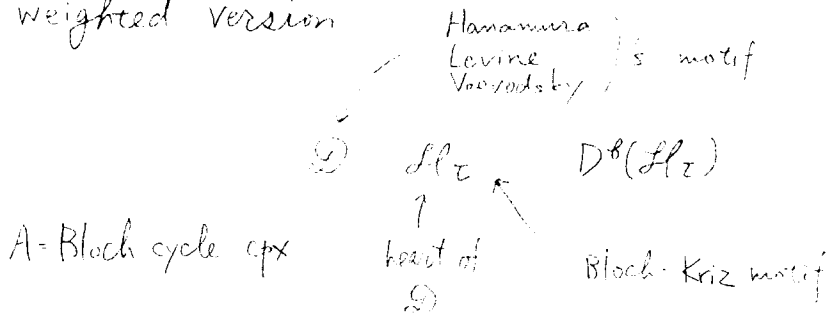 weighted version
Hanamura
Levine
Voevodsky } 's motif
𝒟 ℋ_τ D^b(ℋ_τ)
A = Bloch cycle cpx heart of 𝒟
Bloch-Kriz motif